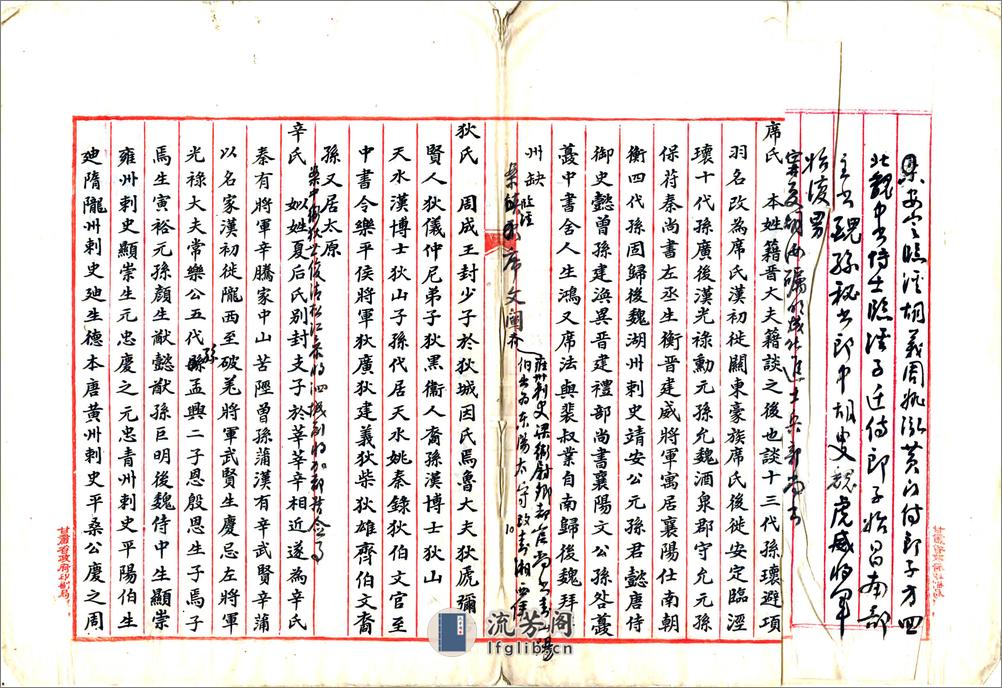 安定臨涇胡義周姚泓黃門侍郎子方回
北魏中書侍士臨涇子迁侍郎子始昌南部
主書 魏孫秘書郎中胡叟魏虎威將軍
始復男
席氏 本姓籍晋大夫籍談之後也談十三代孫瓌避項
羽名改為席氏漢初徙關東豪族席氏後徙安定臨涇
瓌十代孫廣後漢光祿勳元孫允魏酒泉郡守允元孫
保苻秦尚書左丞生衡晋建威將軍寓居襄陽仕南朝
衡四代孫固歸後魏湖州刺史靖安公元孫君懿唐侍
御史懿曾孫建渙異晋建禮部尚書襄陽文公孫咎蔓
蔓中書舍人生鴻又席法與裴叔業自南歸後魏拜
州缺
狄氏 周成王封少子於狄城因氏焉魯大夫狄虒彌
賢人狄儀仲尼弟子狄黑衞人裔孫漢博士狄山
天水漢博士狄山子孫代居天水姚秦錄狄伯文官至
中書令樂平侯將軍狄廣狄建義狄柴狄雄齊伯文裔
孫又居太原
辛氏 姒姓夏后氏別封支子於莘莘辛相近遂為辛氏
秦有將軍辛騰家中山苦陘曾孫蒲漢有辛武賢辛蒲
以名家漢初徙隴西至破羌將軍武賢生慶忌左將軍
光祿大夫常樂公五代孫孟興二子恩殷恩生子焉子
焉生寅裕元孫顏生猷懿猷孫巨明後魏侍中生顯崇
雍州刺史顯崇生元忠慶之元忠青州刺史平陽伯生
廸隋隴州刺史廸生德本唐黃州刺史平桑公慶之周
甘肅省政府印刷局
流芳阁
lfglib.cn